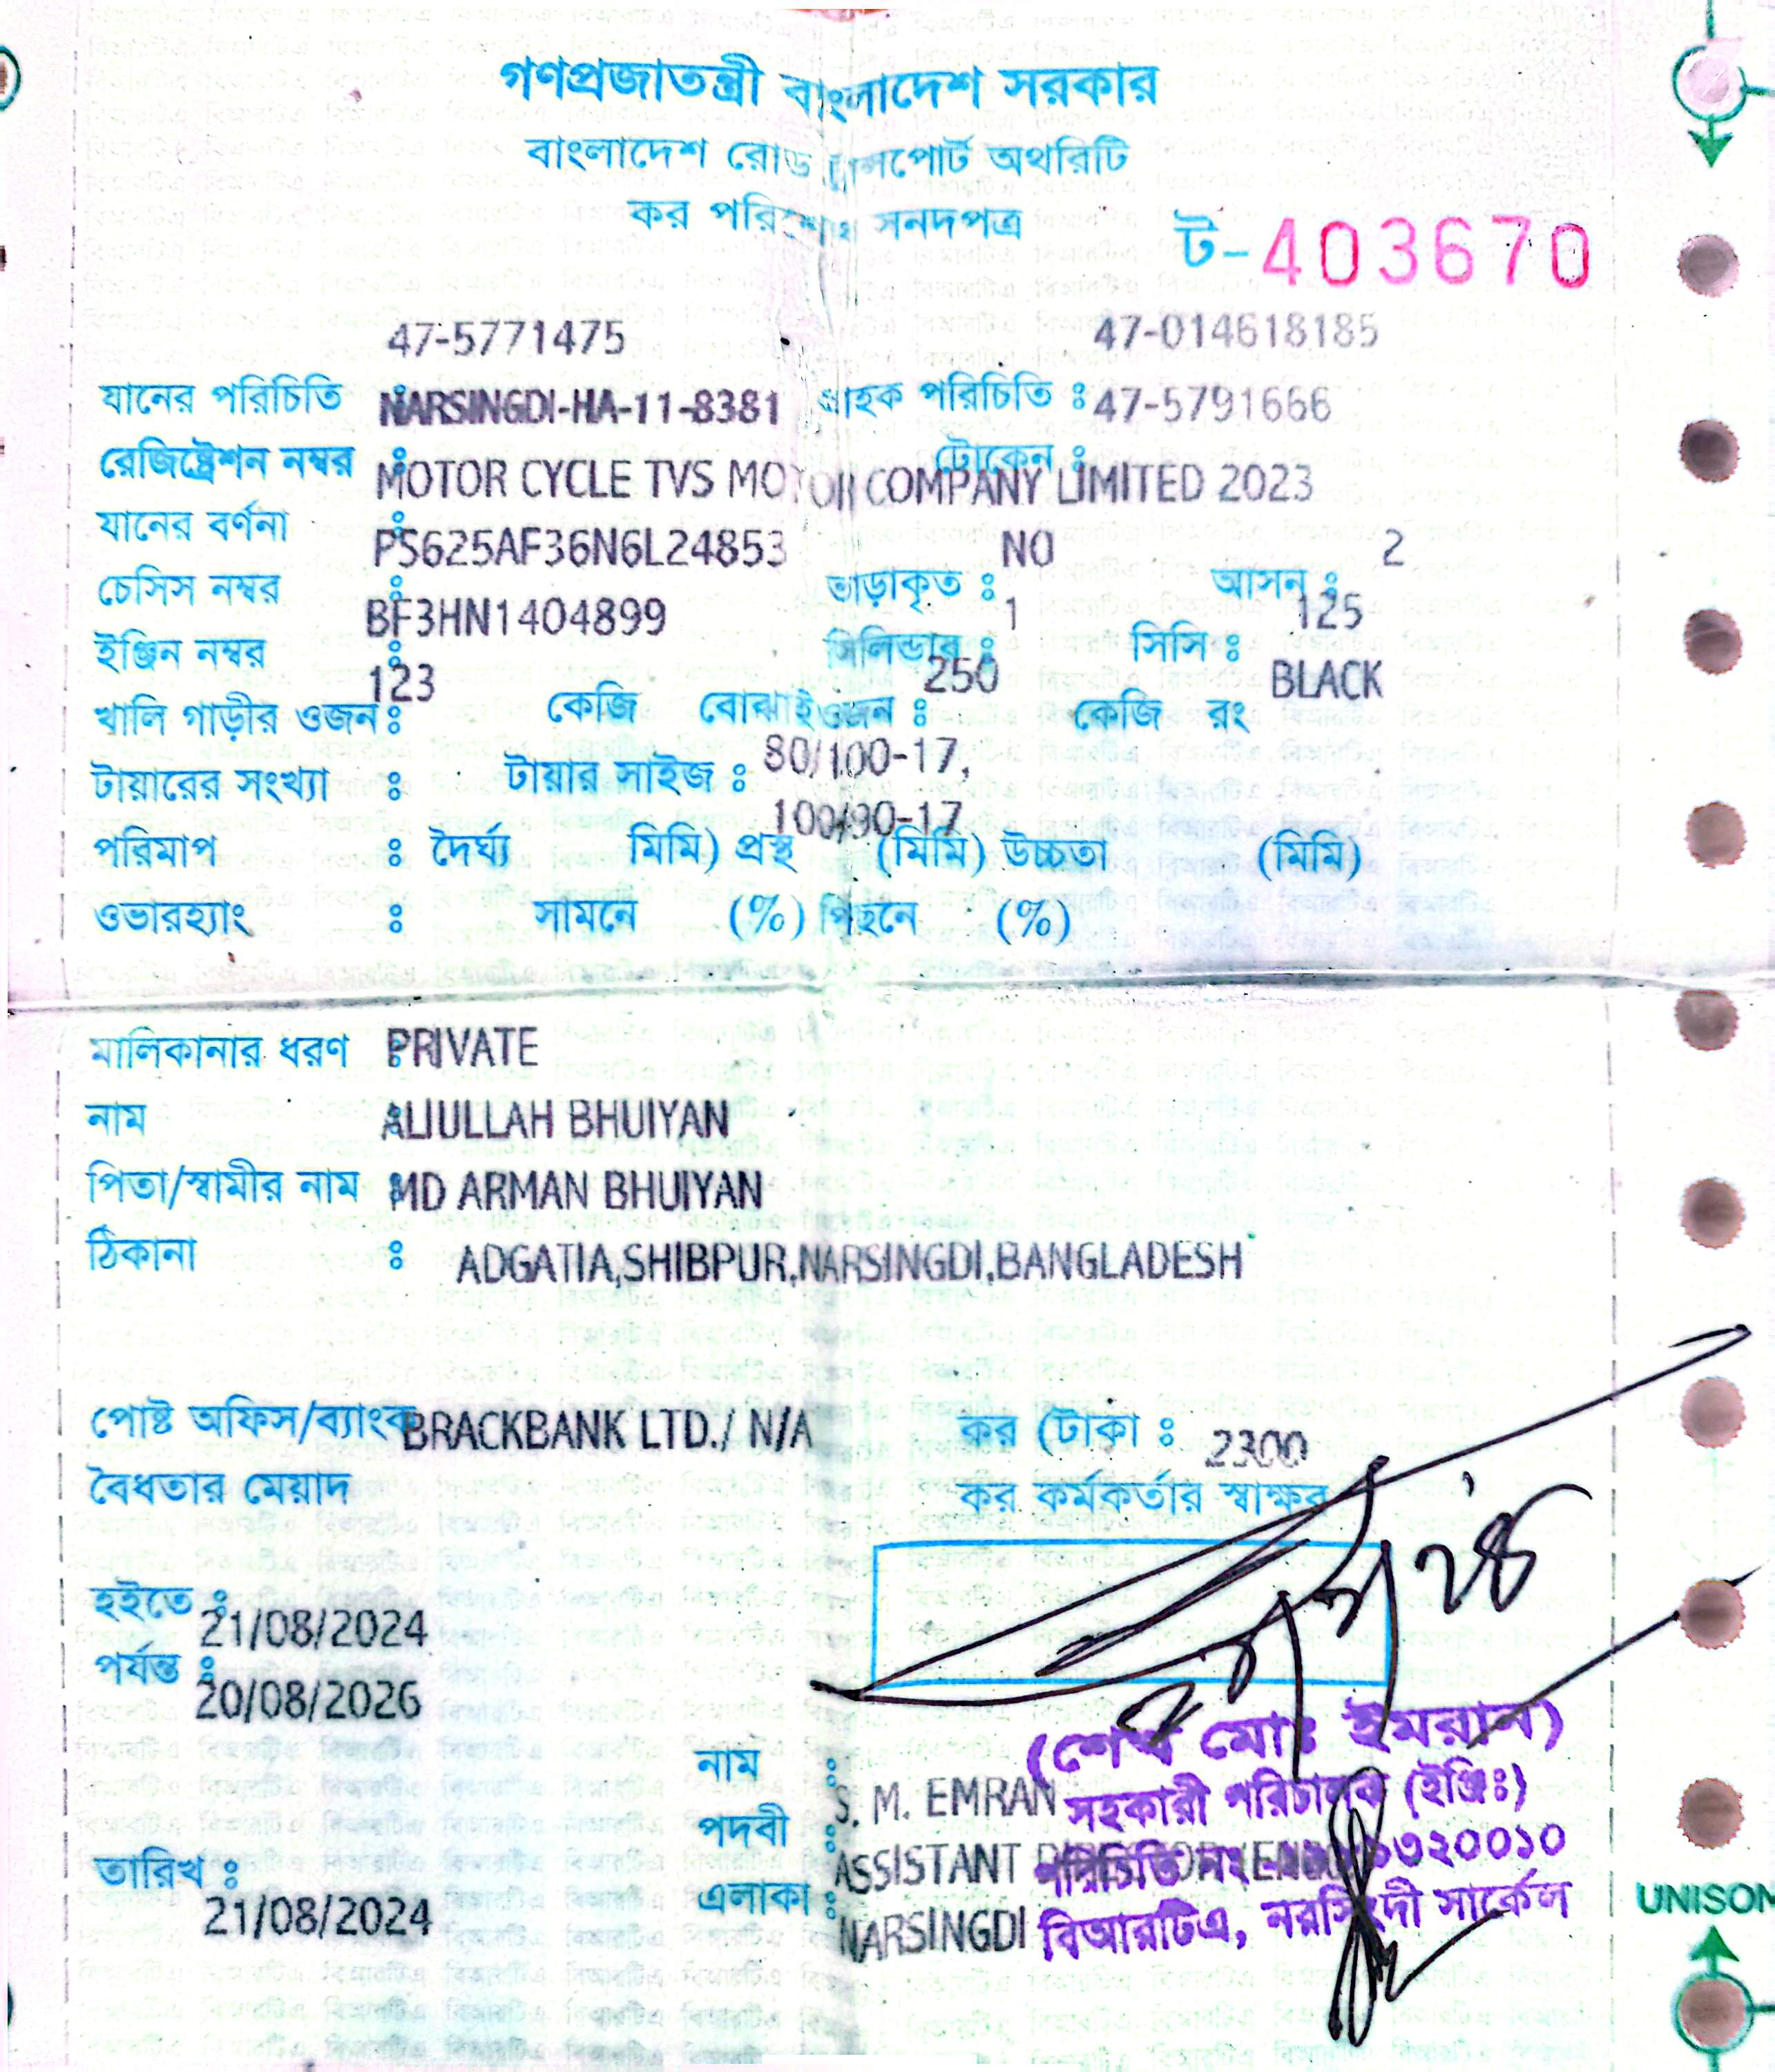 গণপ্রজাতন্ত্রী বাংলাদেশ সরকার
বাংলাদেশ রোড ট্রান্সপোর্ট অথরিটি
কর পরিশোধ সনদপত্র
ট-403670
47-5771475 47-014618185
যানের পরিচিতি : NARSINGDI-HA-11-8381 গ্রাহক পরিচিতি : 47-5791666
রেজিষ্ট্রেশন নম্বর : টোকেন :
MOTOR CYCLE TVS MOTOR COMPANY LIMITED 2023
যানের বর্ণনা :
PS625AF36N6L24853 NO 2
চেসিস নম্বর : ভাড়াকৃত : আসন :
BF3HN1404899 1 125
ইঞ্জিন নম্বর : সিলিন্ডার : সিসি :
123 250 BLACK
খালি গাড়ীর ওজন : কেজি বোঝাই ওজন : কেজি রং
80/100-17,
টায়ারের সংখ্যা : টায়ার সাইজ :
100/90-17
পরিমাপ : দৈর্ঘ্য মিমি) প্রস্থ (মিমি) উচ্চতা (মিমি)
ওভারহ্যাং : সামনে (%) পিছনে (%)
মালিকানার ধরণ : PRIVATE
নাম : ALIULLAH BHUIYAN
পিতা/স্বামীর নাম : MD ARMAN BHUIYAN
ঠিকানা : ADGATIA,SHIBPUR,NARSINGDI,BANGLADESH
পোষ্ট অফিস/ব্যাংক BRACKBANK LTD./ N/A কর (টাকা : 2300
বৈধতার মেয়াদ কর কর্মকর্তার স্বাক্ষর
হইতে : 21/08/2024
পর্যন্ত : 20/08/2026
(শেখ মোঃ ইমরান)
নাম : S. M. EMRAN সহকারী পরিচালক (ইঞ্জিঃ)
পদবী : ASSISTANT DIRECTOR (ENGG) পরিচিতি নং
তারিখ : 21/08/2024
এলাকা : NARSINGDI বিআরটিএ, নরসিংদী সার্কেল
UNISON